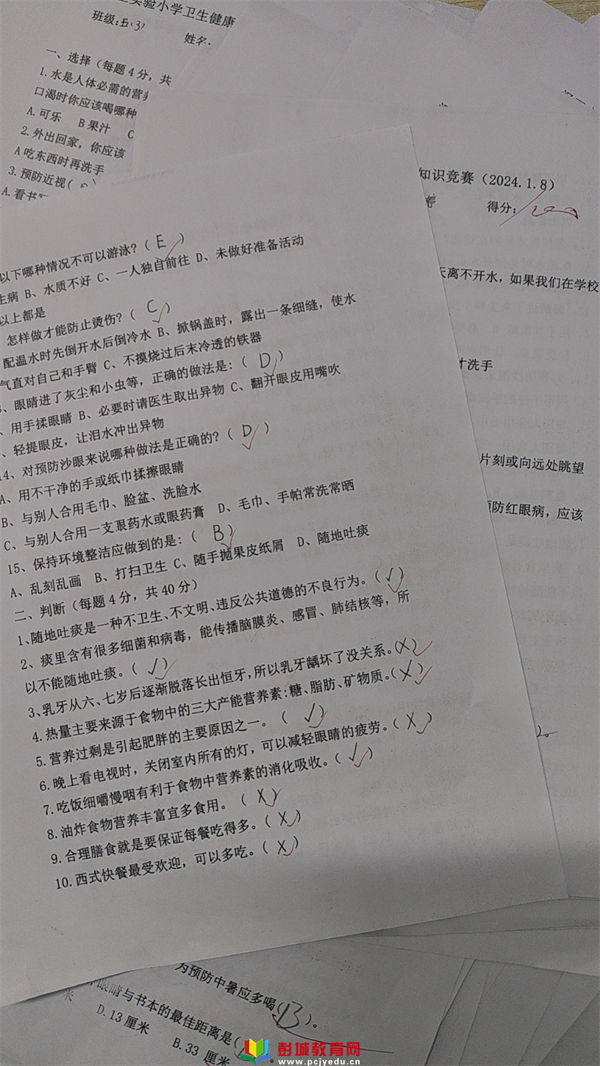 实验小学卫生健康
班级:五.3
姓名.
一、选择（每题4分，共
1.水是人体必需的营养
口渴时你应该喝哪种
A.可乐 B果汁 C
2.外出回家，你应该
A吃东西时再洗手
3.预防近视（
A.看书
知识竞赛（2024.1.8）
得分:100
天离不开水，如果我们在学校
洗手
片刻或向远处眺望
预防红眼病，应该
以下哪种情况不可以游泳?（E）
生病 B、水质不好 C、一人独自前往 D、未做好准备活动
以上都是
怎样做才能防止烫伤?（C）
配温水时先倒开水后倒冷水 B、掀锅盖时，露出一条细缝，使水
气直对自己和手臂 C、不摸烧过后未冷透的铁器
、眼睛进了灰尘和小虫等，正确的做法是:（D）
、用手揉眼睛 B、必要时请医生取出异物 C、翻开眼皮用嘴吹
、轻提眼皮，让泪水冲出异物
14、对预防沙眼来说哪种做法是正确的?（D）
A、用不干净的手或纸巾揉擦眼睛
B、与别人合用毛巾、脸盆、洗脸水
C、与别人合用一支眼药水或眼药膏 D、毛巾、手帕常洗常晒
15、保持环境整洁应做到的是:（B）
A、乱刻乱画 B、打扫卫生 C、随手抛果皮纸屑 D、随地吐痰
二、判断（每题4分，共40分）
1、随地吐痰是一种不卫生、不文明、违反公共道德的不良行为。（√）
2、痰里含有很多细菌和病毒，能传播脑膜炎、感冒、肺结核等，所
以不能随地吐痰。（√）
3、乳牙从六、七岁后逐渐脱落长出恒牙，所以乳牙龋坏了没关系。（×）
4.热量主要来源于食物中的三大产能营养素:糖、脂肪、矿物质。（×）
5.营养过剩是引起肥胖的主要原因之一。（√）
6.晚上看电视时，关闭室内所有的灯，可以减轻眼睛的疲劳。（×）
7.吃饭细嚼慢咽有利于食物中营养素的消化吸收。（√）
8.油炸食物营养丰富宜多食用。（×）
9.合理膳食就是要保证每餐吃得多。（×）
10.西式快餐最受欢迎，可以多吃。（×）
为预防中暑应多喝（B）。
眼睛与书本的最佳距离是（
D.13厘米 B.33厘米
彭城教育网
www.pcjyedu.cn